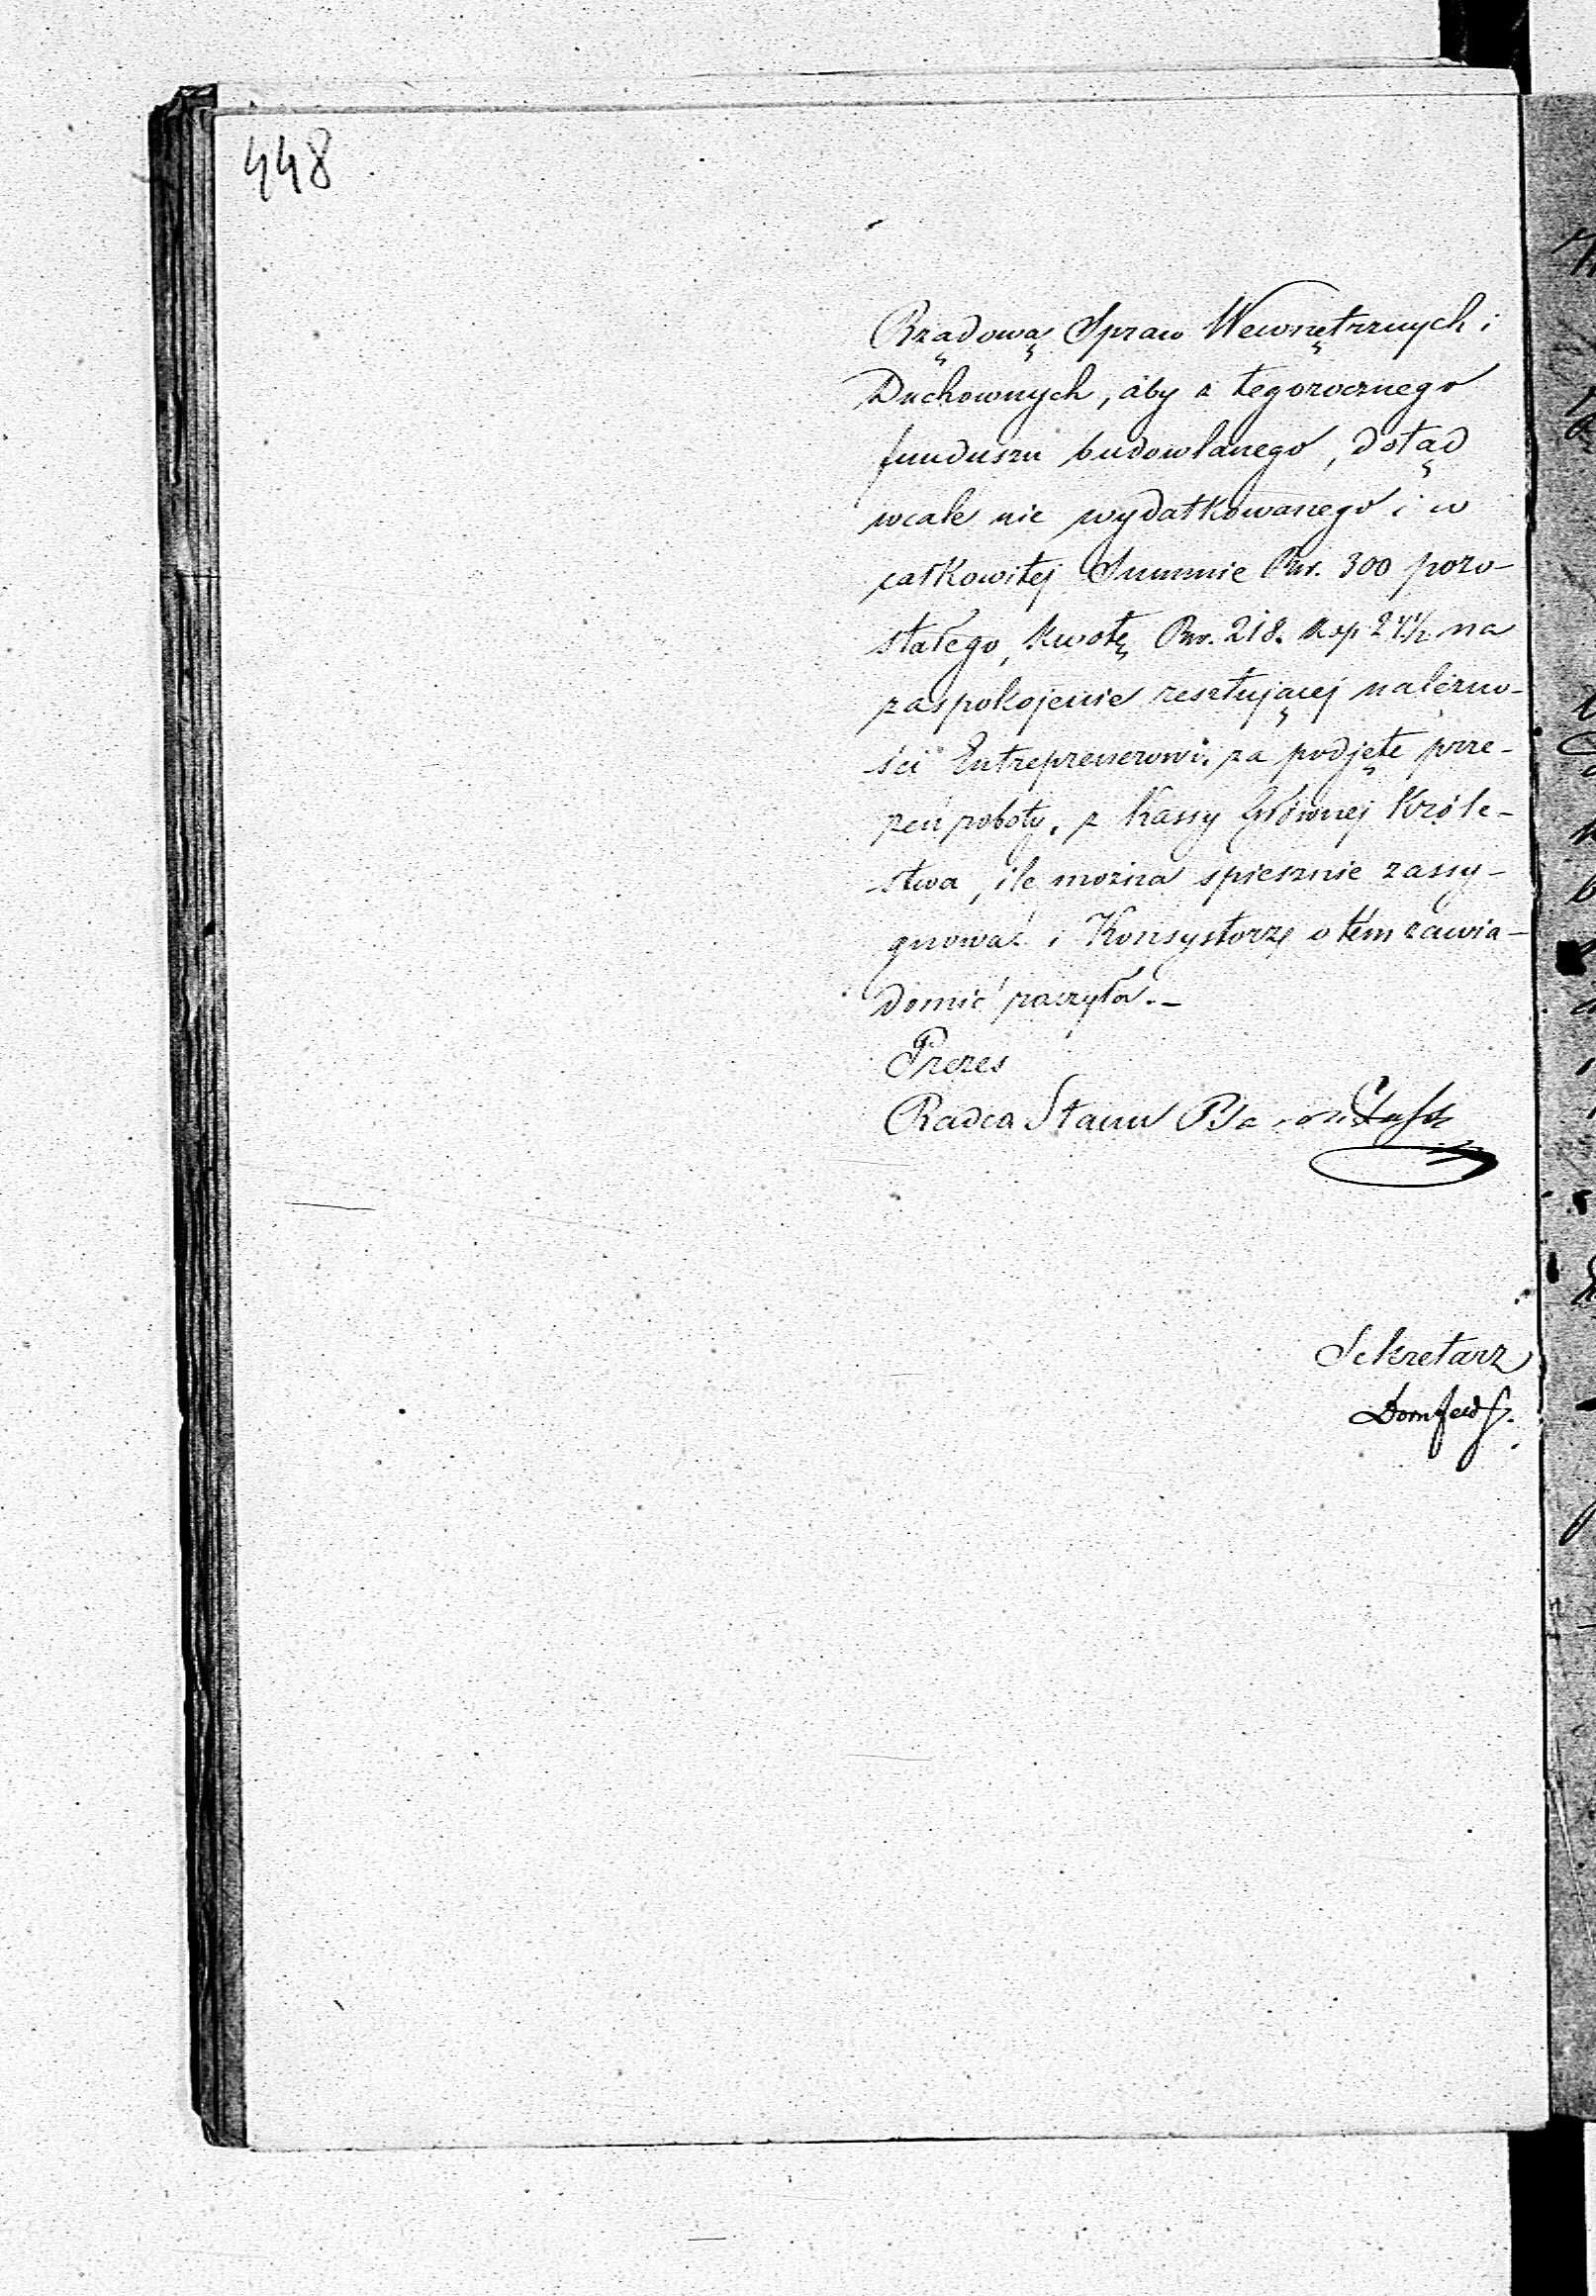 448
Rządową Spraw Wewnętrznych i
Duchownych, aby z tegorocznego
funduszu budowlanego, dotąd
wcale nie wydatkowanego i w
całkowitej Summie Rsr. 300 pozo-
stałego, kwotę Rsr. 218. kop 24½ na
zaspokojenie resztującej należno-
ści Entreprenerowi, za podjęte prze-
zeń roboty, z Kassy Głównej Króle-
stwa, ile można spiesznie zassy-
gnować i Konsystorz o tém zawia-
domić raczyła.-
Prezes
Radca Stanu
Sekretarz